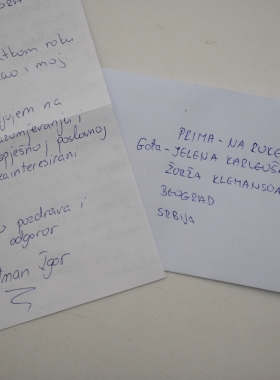 tkom roku
i moj
ujem na
azumjevanju i
spješnoj poslovnoj
zainteresirani
pozdrava i
odgovor
man Igor
PRIMA - NA RUKE
Gđa - JELENA KARLEUŠA
ŽORŽA KLEMANSOA
BEOGRAD
SRBIJA